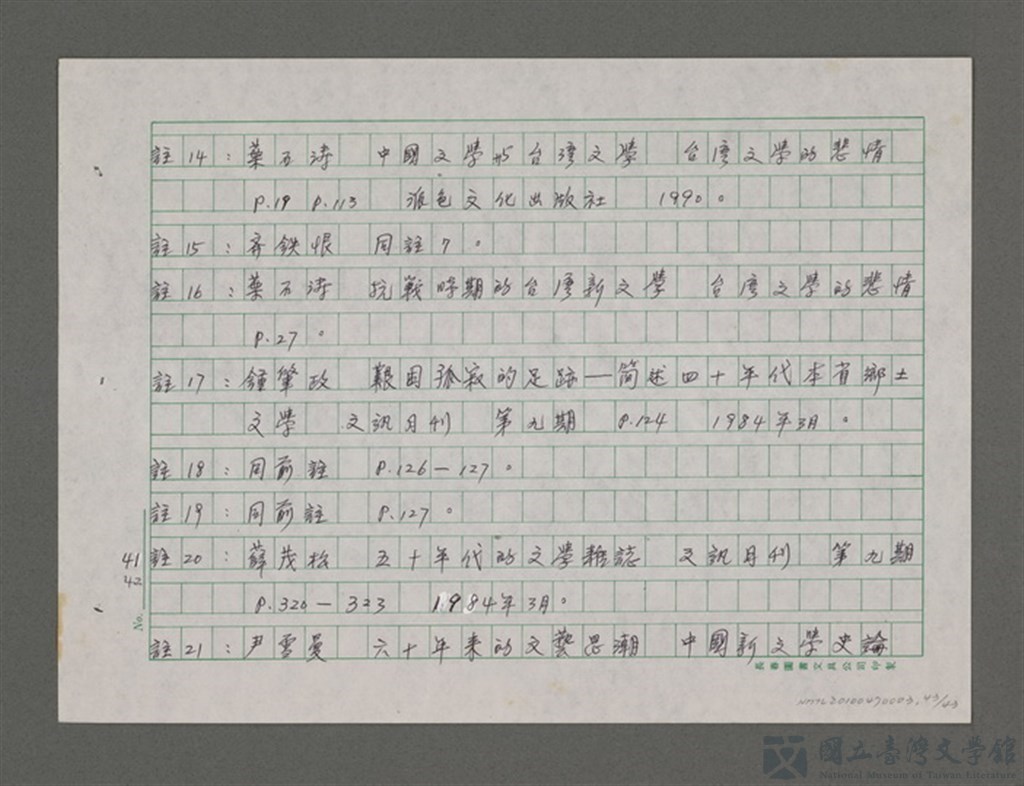 註14：葉石涛 中國文學與台湾文學 台湾文學的悲情
P.19 P.113 派色文化出版社 1990。
註15：齐鉄恨 同註7。
註16：葉石涛 抗戰時期的台湾新文學 台湾文學的悲情
P.27。
註17：鍾肇政 艱困孤寂的足跡—简述四十年代本省鄉土
文學 文訊月刊 第九期 P.124 1984年3月。
註18：同前註 P.126—127。
註19：同前註 P.127。
註20：薛茂松 五十年代的文學雜誌 文訊月刊 第九期
P.320—323 1984年3月。
註21：尹雪曼 六十年来的文藝思潮 中國新文學史論
41
42
No.
長春圖書文具公司印製
NMTL20100470003,43/43
國立臺灣文学館
National Museum of Taiwan Literature